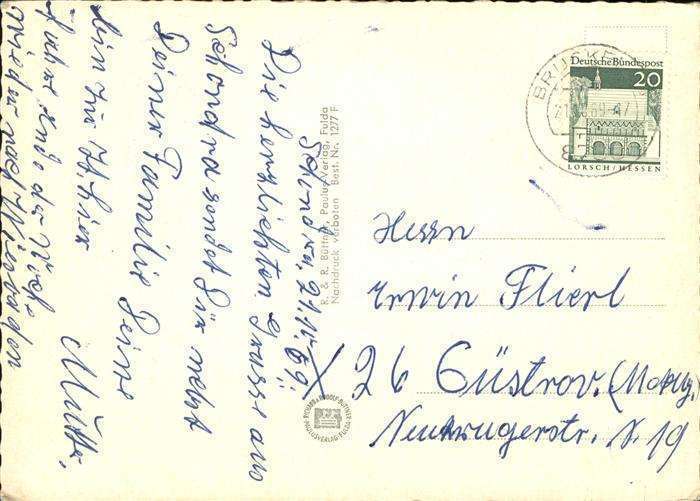 Schondra, 21.11.69
Die herzlichsten Grüsse aus
Schondra sendet Dir nebst
Deiner Familie Deine
Mutti.
bin zur Zt. hier
fahre Ende der Woche
wieder nach Wiesbaden
R. & R. Büttner, Paulus-Verlag, Fulda
Nachdruck verboten Best. Nr. 1277 F
Deutsche Bundespost
20
LORSCH / HESSEN
Herrn
Erwin Flierl
X 26 Güstrow. (Meckl.)
Neukrugerstr. N. 19